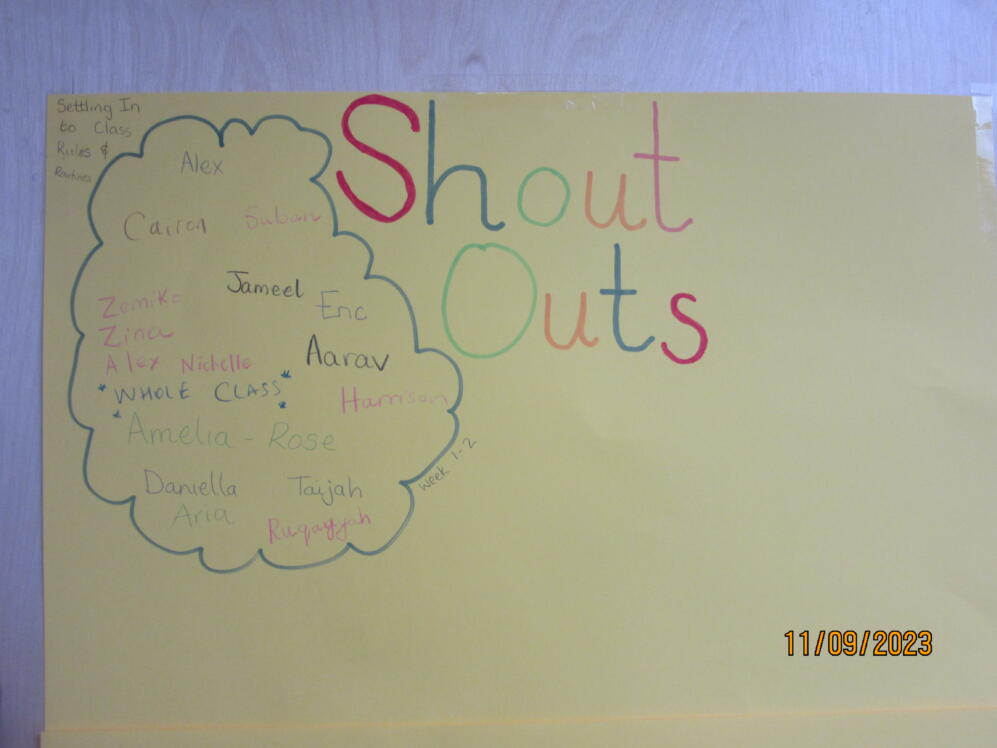 Settling In
to Class
Rules &
Routines
Shout
Outs
Alex
Cairon Suban
Jameel
Zemike Eric
Zina
Aarav
Alex Nichelle
*WHOLE CLASS*
Harrison
Amelia - Rose
Daniella Taijah
Aria
Ruqayyah
Week 1-2
11/09/2023